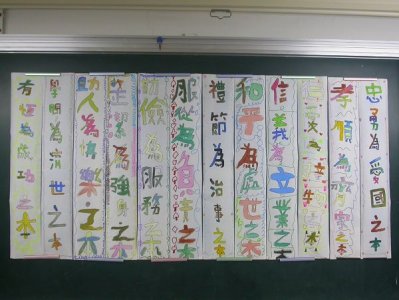 忠勇為愛國之本
孝順為齊家之本
仁愛為接物之本
信義為立業之本
和平為處世之本
禮節為治事之本
服從為負責之本
勤儉為服務之本
整潔為強身之本
助人為快樂之本
學問為濟世之本
有恆為成功之本